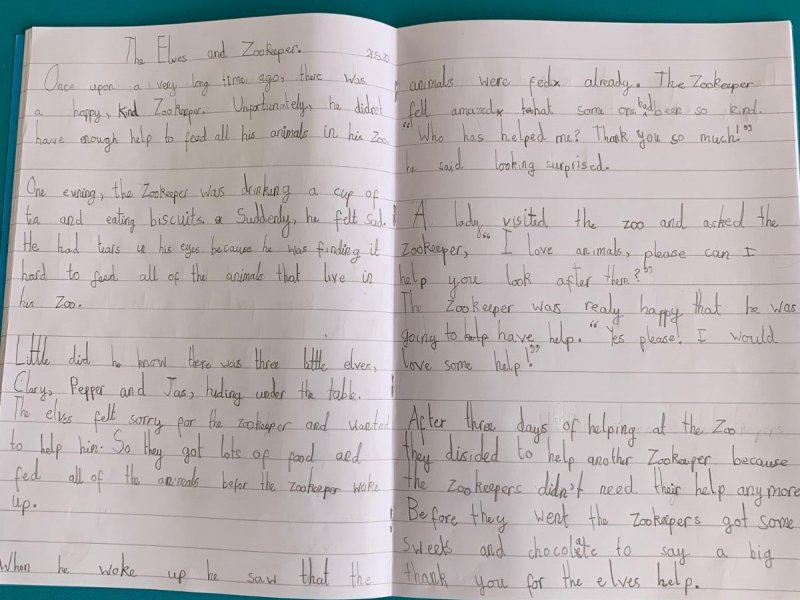 The Elves and Zookeeper.
Once upon a very long time ago, there was
a happy, kind Zookeeper. Unfortunately, he didn't
have enough help to feed all his animals in his Zoo.
One evning, the Zookeeper was drinking a cup of
tea and eating biscuits. Suddenly, he felt sad.
He had tears is his eyes because he was finding it
hard to feed all of the animals that live in
his Zoo.
Little did he know there was three little elves,
Clary, Pepper and Jas, hiding under the table.
The elves felt sorry for the zookeeper and wanted
to help him. So they got lots of food and
fed all of the animals befor the zookeeper woke
up.
When he woke up he saw that the
animals were fed already. The Zookeeper
fell amazed that some one had been so kind.
"Who has helped me? Thank you so much!"
he said looking surprised.
A lady visited the zoo and asked the
zookeeper, "I love animals, please can I
help you look after them?"
The zookeeper was realy happy that he was
going to help have help. "Yes please! I would
love some help!"
After three days of helping at the Zoo
they disided to help another Zookeeper because
the Zookeepers didn't need their help anymore
Before they went the zookeepers got some
sweets and chocolate to say a big
thank you for the elves help.